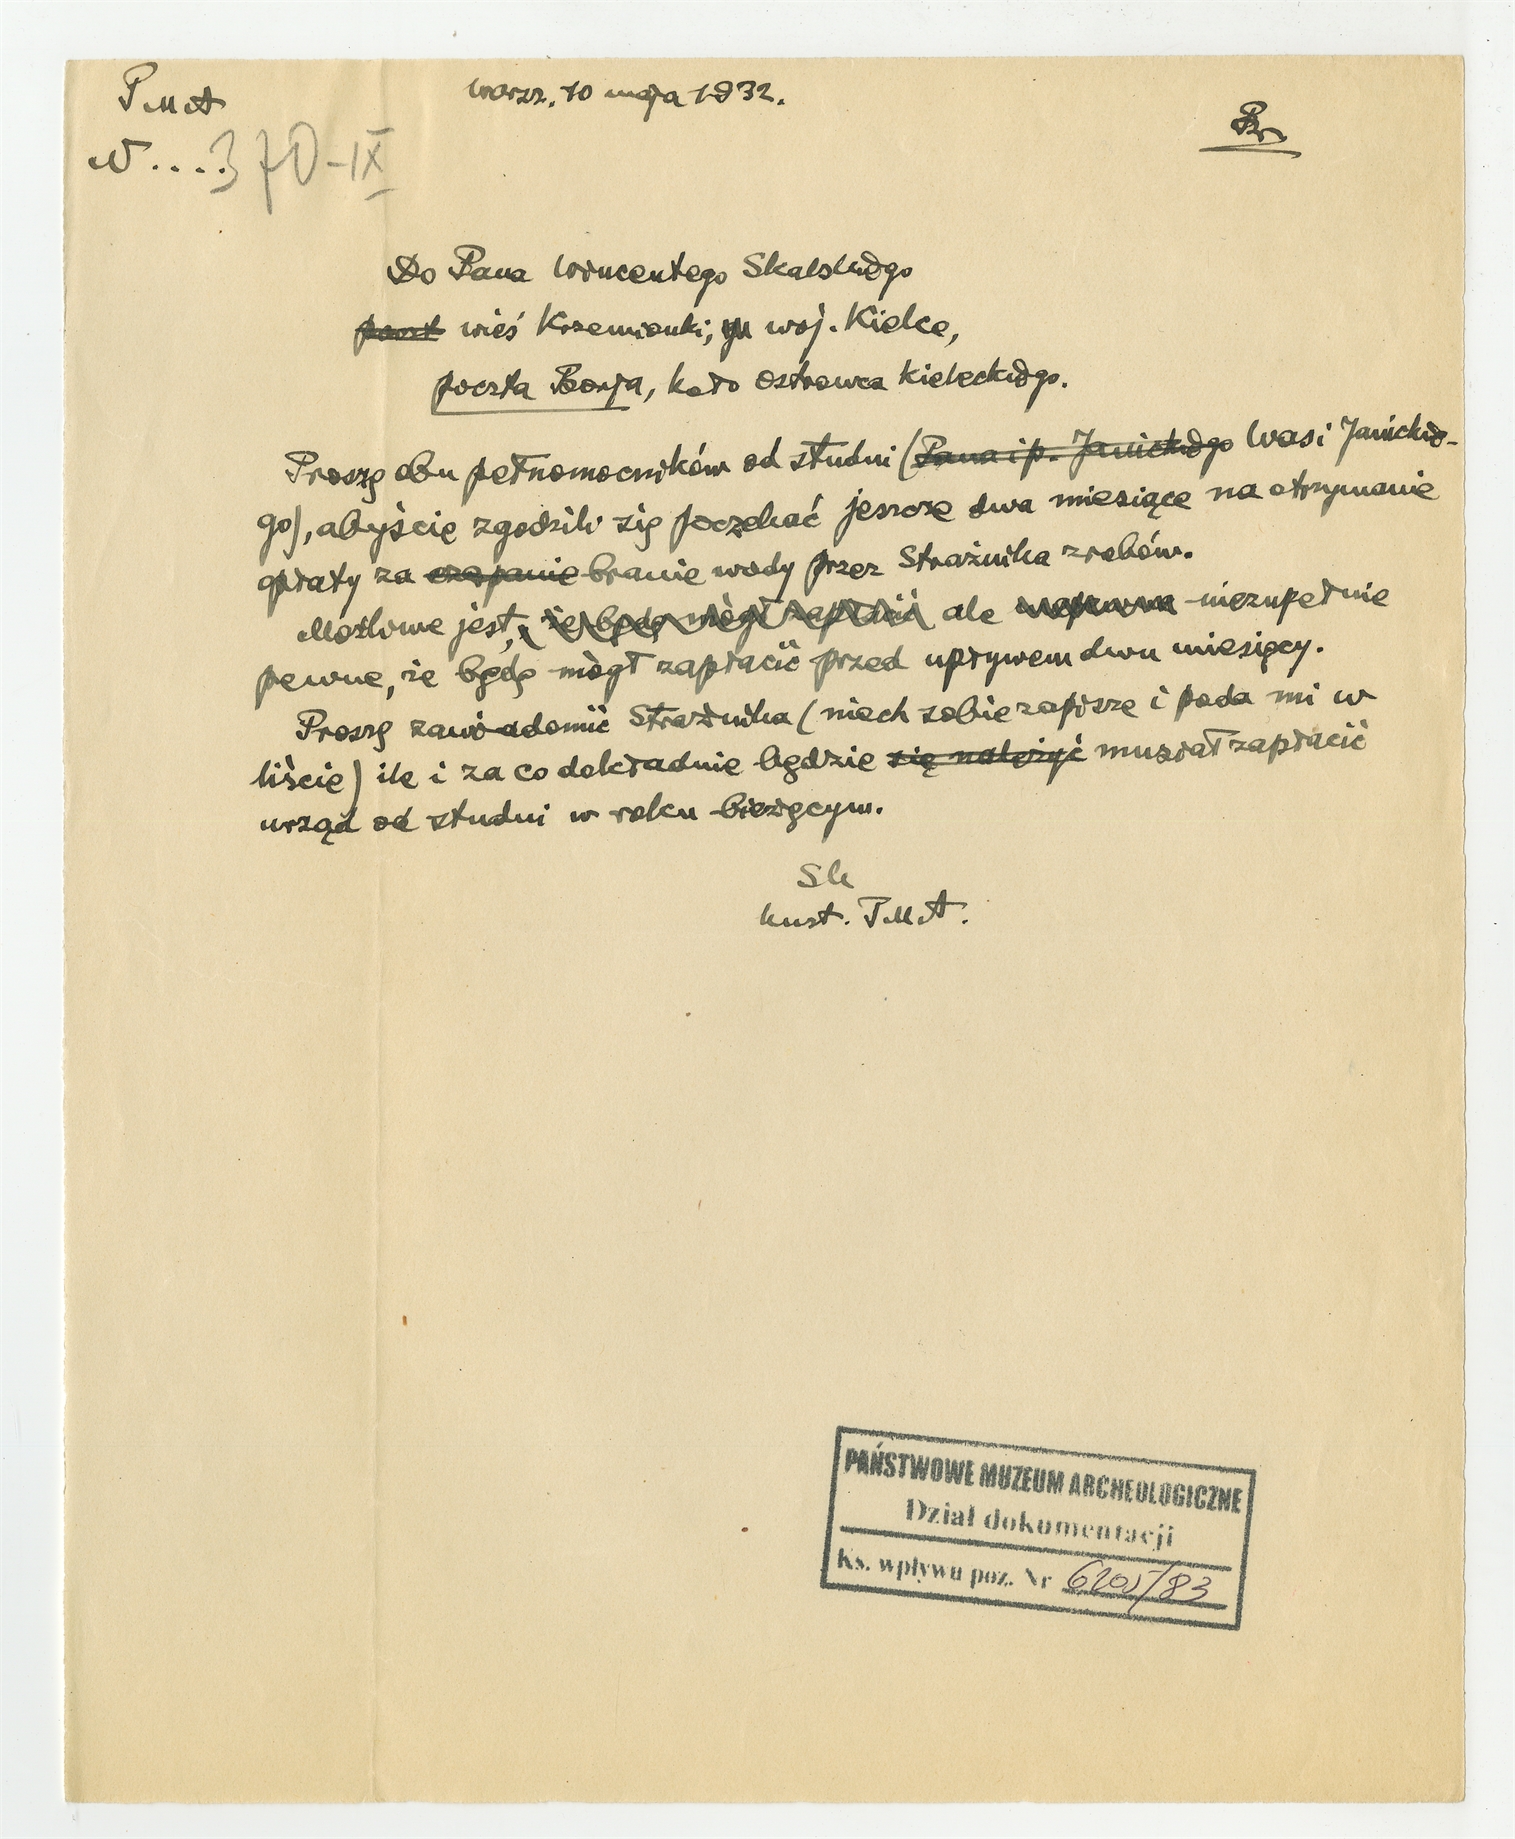 PMA
Warsz. 10 maja 1932.
Br.
N....370-IX
Do Pana Wincentego Skalskiego
poczt wieś Krzemionki, woj. Kielce,
poczta Borja, koło Ostrowca kieleckiego.
Proszę obu pełnomocników od studni (Pana i p. Janickiego Was i Janickie-
go), abyście zgodzili się poczekać jeszcze dwa miesiące na otrzymanie
opłaty za czerpanie branie wody przez Strażnika zrobów.
Możliwe jest, że będę mógł zapłacić ale niezupełnie
pewne, że będę mógł zapłacić przed upływem dwu miesięcy.
Proszę zawiadomić Strażnika (niech sobie zapisze i poda mi w
liście) ile i za co dokładnie będzie się należyć musiał zapłacić
urząd od studni w roku bieżącym.
Sk
kust. PMA.
PAŃSTWOWE MUZEUM ARCHEOLOGICZNE
Dział dokumentacji
Ks. wpływu poz. Nr 6205/83